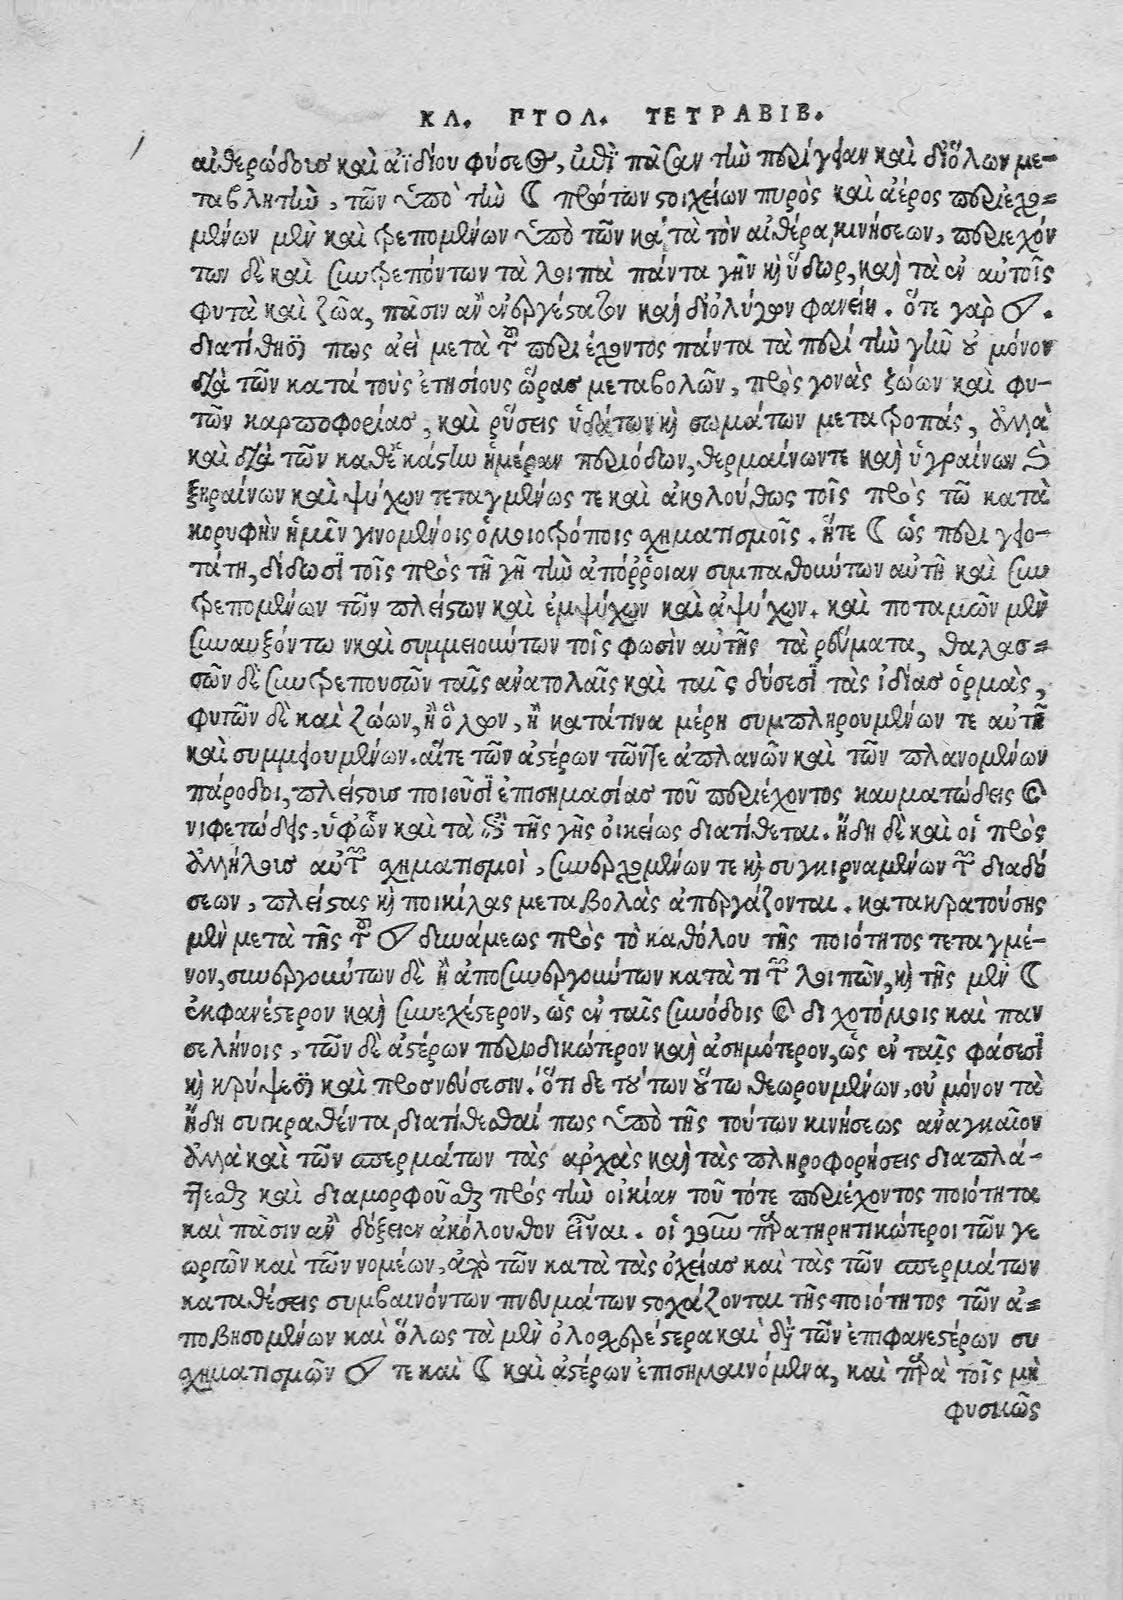 ΚΛ. ΠΤΟΛ. ΤΕΤΡΑΒΙΒ.
αἰθερώδους καὶ ἀϊδίου φύσεως, ἐπὶ πᾶσαν τὴν περίγειαν καὶ διόλων με-
ταβλητὴν, τῶν ὑπὸ τὴν ☾ πρώτων στοιχείων πυρὸς καὶ ἀέρος περιεχο=
μένων μὲν καὶ τρεπομένων ὑπὸ τῶν κατὰ τὸν αἰθέρα κινήσεων, περιεχόν
των δὲ καὶ συντρεπόντων τὰ λοιπὰ πάντα γῆν κὶ ὕδωρ, καὶ τὰ ἐν αὐτοῖς
φυτὰ καὶ ζῶα, πᾶσιν ἂν ἐνεργέστατον καὶ δι᾽ ὀλίγων φανείη. ὅτε γὰρ ☉.
διατίθησι πως ἀεὶ μετὰ τοῦ περιέχοντος πάντα τὰ περὶ τὴν γῆν οὐ μόνον
διὰ τῶν κατὰ τοὺς ἐτησίους ὥρας μεταβολῶν, πρὸς γονὰς ζώων καὶ φυ-
τῶν καρποφορίας, καὶ ρύσεις ὑδάτων κὶ σωμάτων μετατροπάς, ἀλλὰ
καὶ διὰ τῶν καθ᾽ ἑκάστην ἡμέραν περιόδων, θερμαίνων τε καὶ ὑγραίνων καὶ
ξηραίνων καὶ ψύχων τεταγμένως τε καὶ ἀκολούθως τοῖς πρὸς τῶ κατὰ
κορυφὴν ἡμῖν γινομένοις ὁμοιοτρόποις σχηματισμοῖς. ἥτε ☾ ὡς περιγειο-
τάτη, δίδωσι τοῖς πρὸς τῇ γῇ τὴν ἀπόρροιαν συμπαθούντων αὐτῇ καὶ συν
τρεπομένων τῶν πλείστων καὶ ἐμψύχων καὶ ἀψύχων. καὶ ποταμῶν μὲν
συναυξόντω νκαὶ συμμειούντων τοῖς φωσὶν αὐτῆς τὰ ρεύματα, θαλασ=
σῶν δὲ συντρεπουσῶν ταῖς ἀνατολαῖς καὶ ταῖς δύσεσι τὰς ἰδίας ὁρμὰς,
φυτῶν δὲ καὶ ζώων, ἢ ὅλων, ἢ κατάτινα μέρη συμπληρουμένων τε αὐτῇ
καὶ συμμειουμένων. αἵτε τῶν ἀστέρων τῶντε ἀπλανῶν καὶ τῶν πλανομένων
πάροδοι, πλείστους ποιοῦσι ἐπισημασίας τοῦ περιέχοντος καυματώδεις καὶ
νιφετώδεις, ὑφ᾽ ὧν καὶ τὰ ἐπὶ τῆς γῆς οἰκείως διατίθεται. ἤδη δὲ καὶ οἱ πρὸς
ἀλλήλους αὐτῶν σχηματισμοὶ, συνερχομένων τε κὶ συγκιρναμένων τῶν διαδό
σεων, πλείστας κὶ ποικίλας μεταβολὰς ἀπεργάζονται. κατακρατούσης
μὲν μετὰ τῆς τοῦ ☉ δυνάμεως πρὸς τὸ καθόλου τῆς ποιότητος τεταγμέ-
νον, συνεργούντων δὲ ἢ ἀποσυνεργούντων κατὰ τι τῶν λοιπῶν, κὶ τῆς μὲν ☾
ἐκφανέστερον καὶ συνεχέστερον, ὡς ἐν ταῖς συνόδοις καὶ διχοτόμοις καὶ παν
σελήνοις, τῶν δὲ ἀστέρων περιοδικώτερον καὶ ἀσημότερον, ὡς ἐν ταῖς φάσεσι
κὶ κρύψεσι καὶ προσνεύσεσιν. ὅτι δε τούτων οὕτω θεωρουμένων, οὐ μόνον τὰ
ἤδη συγκραθέντα, διατίθεσθαί πως ὑπὸ τῆς τούτων κινήσεως ἀναγκαῖον
ἀλλὰ καὶ τῶν σπερμάτων τὰς ἀρχὰς καὶ τὰς πληροφορήσεις διαπλά-
τεσθαι καὶ διαμορφοῦσθαι πρὸς τὴν οἰκίαν τοῦ τότε περιέχοντος ποιότητα
καὶ πᾶσιν ἂν δόξειεν ἀκόλουθον εἶναι. οἱ γοῦν παρατηρητικώτεροι τῶν γε
ωργῶν καὶ τῶν νομέων, ἀπὸ τῶν κατὰ τὰς ὀχείας καὶ τὰς τῶν σπερμάτων
καταθέσεις συμβαινόντων πνευμάτων στοχάζονται τῆς ποιότητος τῶν ἀ=
ποβησομένων καὶ ὅλως τὰ μὲν ὁλοσχερέστερα καὶ διὰ τῶν ἐπιφανεστέρων συ
σχηματισμῶν ☉ τε καὶ ☾ καὶ ἀστέρων ἐπισημαινόμενα, καὶ παρὰ τοῖς μὴ
φυσικῶς